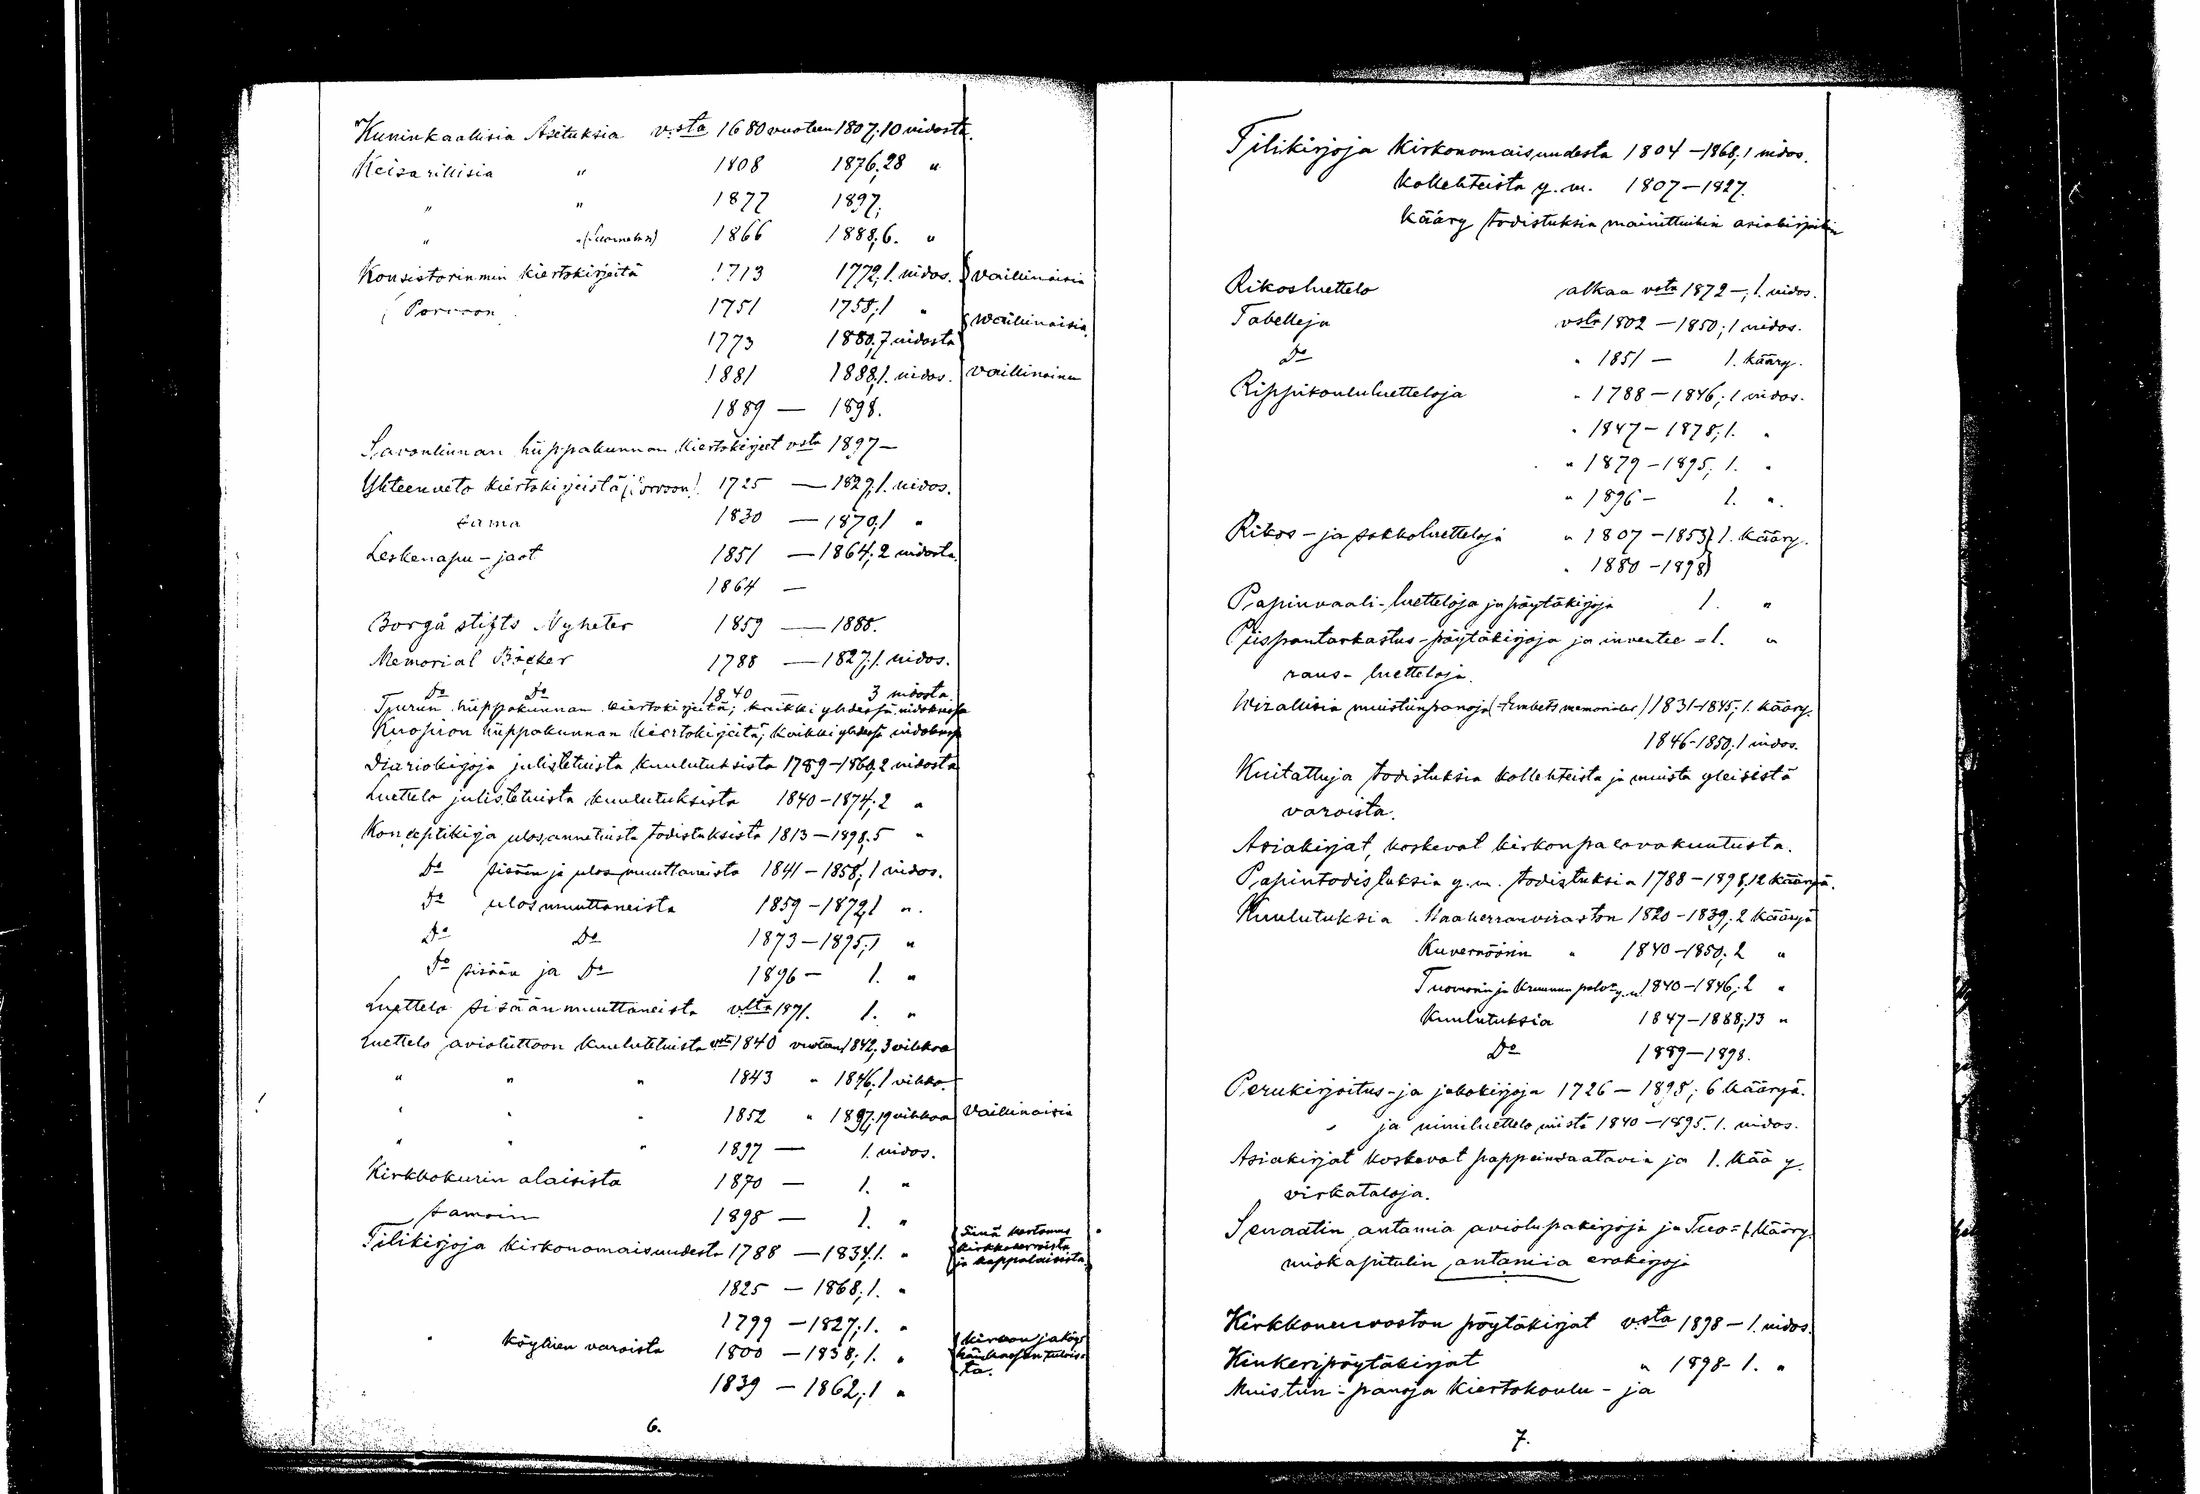 Kuninkaallisia Asetuksia v:sta 1680 vuoteen 1807; 10 nidosta.
Keisarillisia " 1808 1876; 28 "
" " 1877 1897;
" " 1866 1888; 6. "
Konsistoriumin kiertokirjeitä 1713 1772; 1. nidos. vaillinaisia
(Porvoon) 1751 1758; 1 "
vaillinaisia
1773 1880; 7 nidosta
1881 1888; 1. nidos. vaillinainen
1889 — 1898.
Savonlinnan hiippakunnan kiertokirjeet vsta 1897 —
Yhteenveto kiertokirjeistä (Porvoon) 1725 — 1829; 1. nidos.
sama 1830 — 1870; 1 "
Leskenapu-jaot 1851 — 1864; 2 nidosta.
1864 —
Borgå stifts Nyheter 1859 — 1888.
Memorial Böcker 1788 — 1827; 1. nidos.
Do Do 1840 3 nidosta
Turun hiippakunnan kiertokirjeitä; kaikki yhdessä nidoksessa
Kuopion hiippakunnan kiertokirjeitä; kaikki yhdessä nidoksessa
Diariokirjoja julistetuista kuulutuksista 1789 – 1860; 2 nidosta
Luettelo julistetuista kuulutuksista 1840 – 1874; 2 "
Konseptikirja ulosannetuista todistuksista 1813 – 1898; 5 "
Do sisään ja ulos muuttaneista 1841 – 1858; 1 nidos.
Do ulosmuuttaneista 1859 – 1872; 1 ".
Do Do 1873 – 1895; 1 "
Do sisään ja Do 1896 – 1. "
Luettelo sisäänmuuttaneista v:lta 1871. 1. "
Luettelo avioliittoon kuulutetuista vsta 1840 vuoteen 1842; 3 vihkoa
" " " 1843 " 1846; 1 vihko.
" " " 1852 " 1897; 19 vihkoa vaillinaisia
" " " 1897 — 1. nidos.
Kirkkokurin alaisista 1870 — 1. "
samoin 1898 — 1. "
Tilikirjoja kirkonomaisuudesta 1788 — 1834; 1. " Siinä kertomus kirkkoherroista ja kappalaisista
1825 — 1868; 1. "
1799 — 1827; 1. "
" köyhien varoista 1800 — 1838; 1. "
1839 — 1862; 1 "
6.
Tilikirjoja kirkonomaisuudesta 1804 – 1868; 1 nidos.
kollehteista y.m. 1807 – 1827.
kääry todistuksia mainittuihin asiakirjoihin
Rikosluettelo alkaa vsta 1872 –; 1. nidos.
Tabelleja vsta 1802 – 1850; 1 nidos.
Do " 1851 – 1. kääry.
Rippikoululuetteloja " 1788 – 1846; 1 nidos.
" 1847 – 1878; 1. "
" 1879 – 1895; 1. "
" 1896 – 1. ".
Rikos- ja sakkoluetteloja " 1807 – 1853} 1. kääry.
" 1880 – 1898}
Papinvaali-luetteloja ja pöytäkirjoja 1. "
Piispantarkastus-pöytäkirjoja ja invente= 1. "
raus-luetteloja.
Wirallisia muistiinpanoja (Embets memorialer) 1831 – 1845; 1. kääry.
1846 – 1850; 1 nidos.
Kuitattuja todistuksia kollehteista ja muista yleisistä
varoista.
Asiakirjat, koskevat kirkonpalovakuutusta.
Papintodistuksia y.m. todistuksia 1788 – 1898; 12 kääryä.
Kuulutuksia Maaherranviraston 1820 – 1839; 2 kääryä
Kuvernöörin " 1840 – 1850; 2 "
Tuomarin ja Kruunun palv. y.m. 1840 – 1846; 2 "
Kuulutuksia 1847 – 1888; 13 "
Do 1889 – 1898.
Perukirjoitus- ja jakokirjoja 1726 – 1898; 6 kääryä.
" ja nimiluettelo niistä 1840 – 1895. 1. nidos.
Asiakirjat koskevat pappeinsaatavia ja 1. kääry.
virkataloja.
Senaatin antamia aviolupakirjoja ja Tuo= 1. kääry.
miokapitulin antamia erokirjoja
Kirkkoneuvoston pöytäkirjat v:sta 1898 – 1. nidos.
Kinkeripöytäkirjat " 1898 – 1. "
Muistiin-panoja kiertokoulu- ja
7.